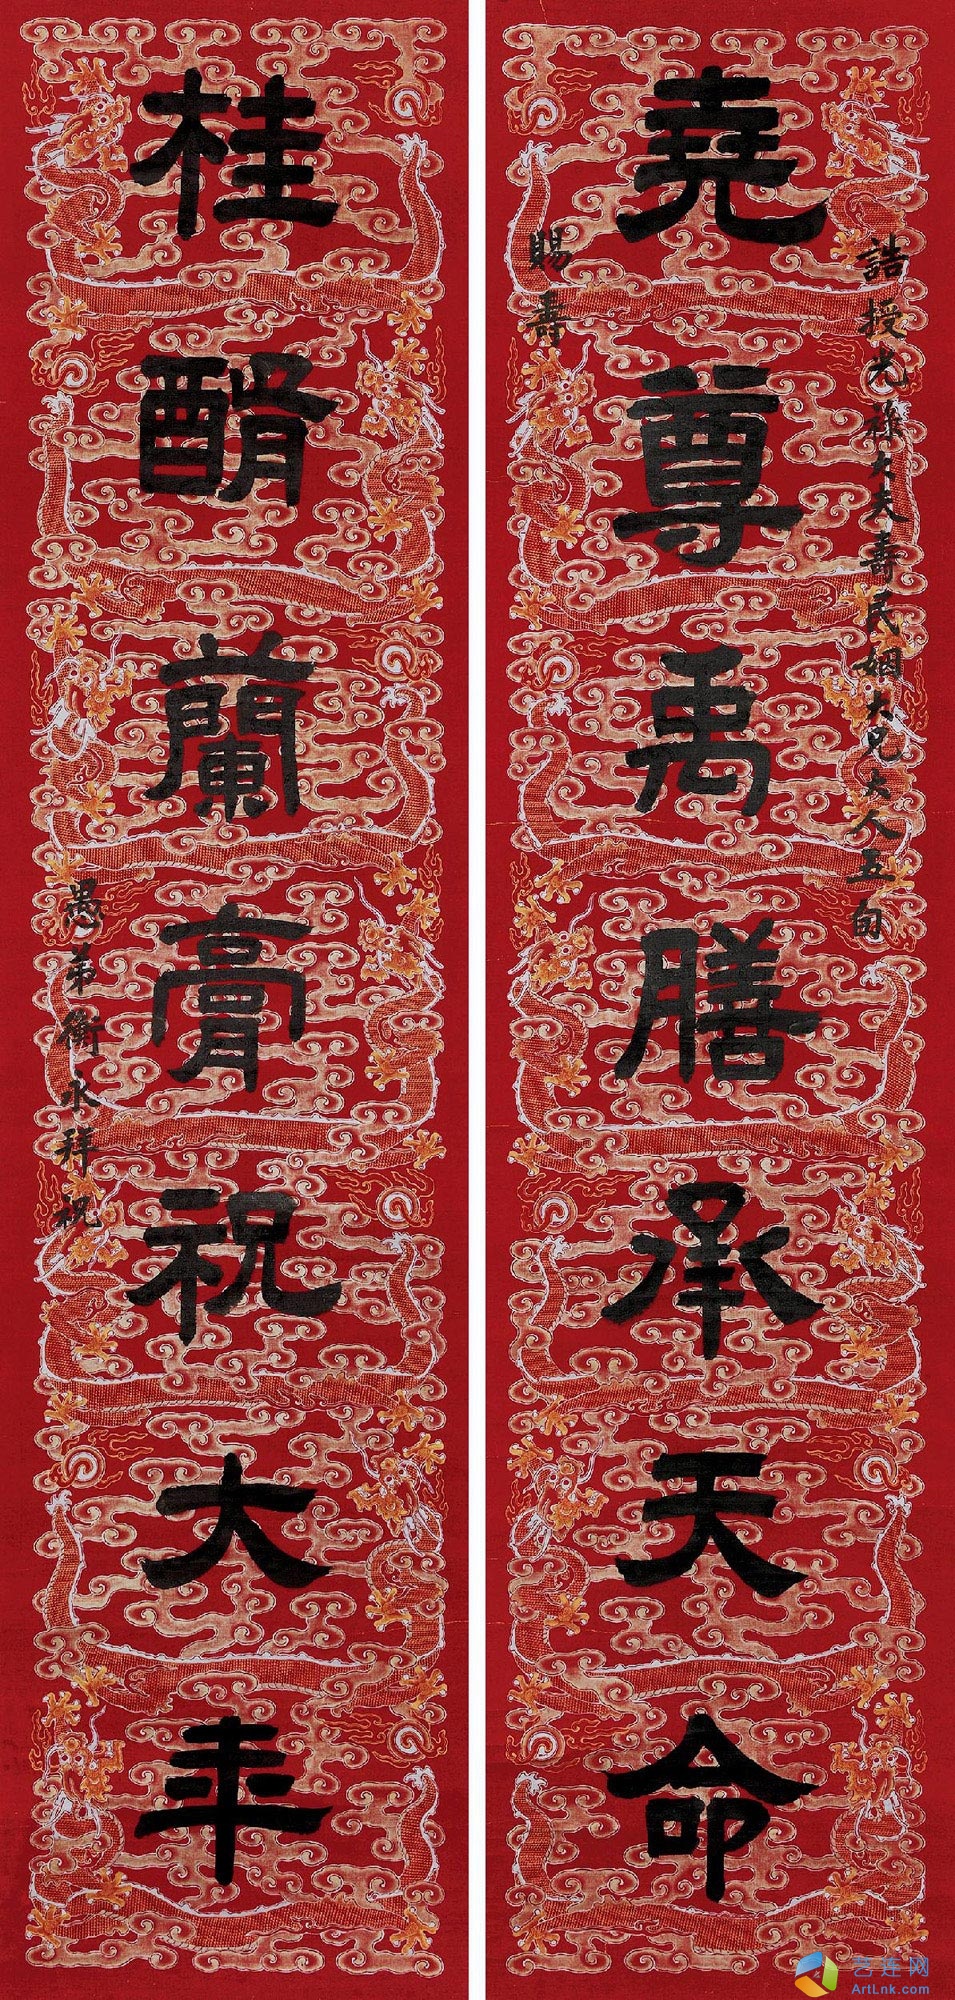 誥授光祿大夫壽民姻大兄大人五旬
賜壽
堯尊禹膳承天命
桂醑蘭膏祝大年
愚弟衡永拜祝
艺连网
ArtLnk.com